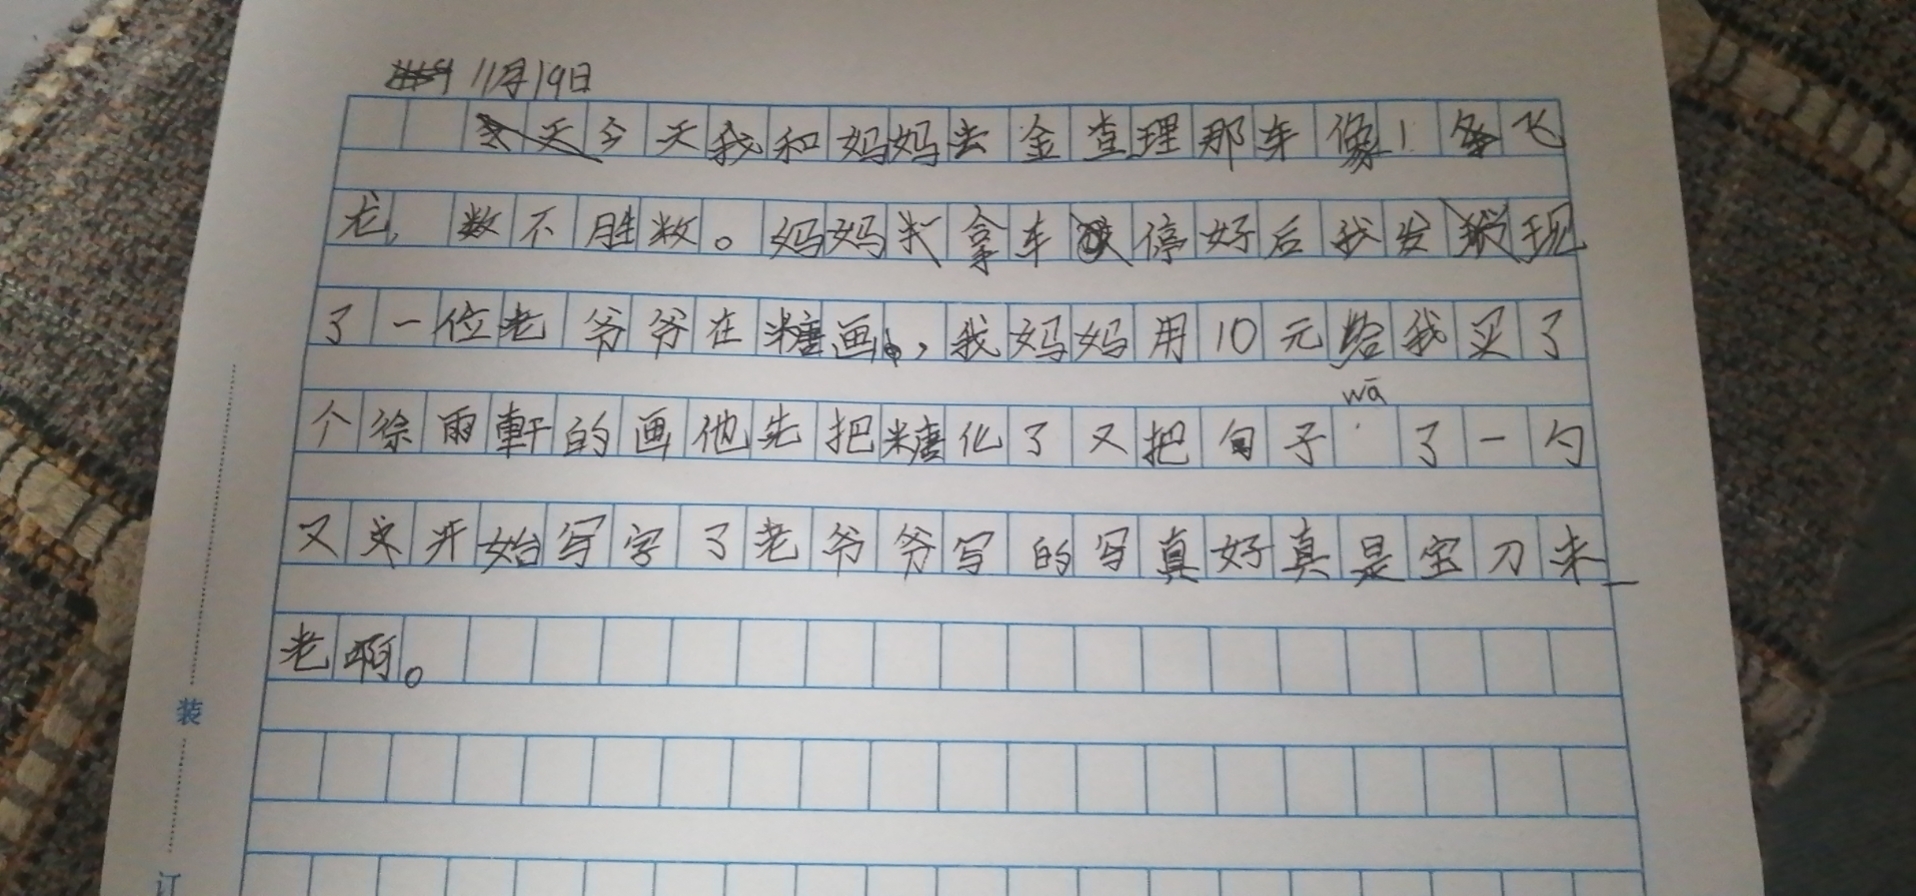 11月19日
今天我和妈妈去金查理那车像1条飞
龙，数不胜数。妈妈找拿车停好后我发现
了一位老爷爷在糖画，我妈妈用10元给我买了
wā
个徐雨軒的画他先把糖化了又把句子了一勺
又来开始写字了老爷爷写的写真好真是宝刀未
老啊。
装
订